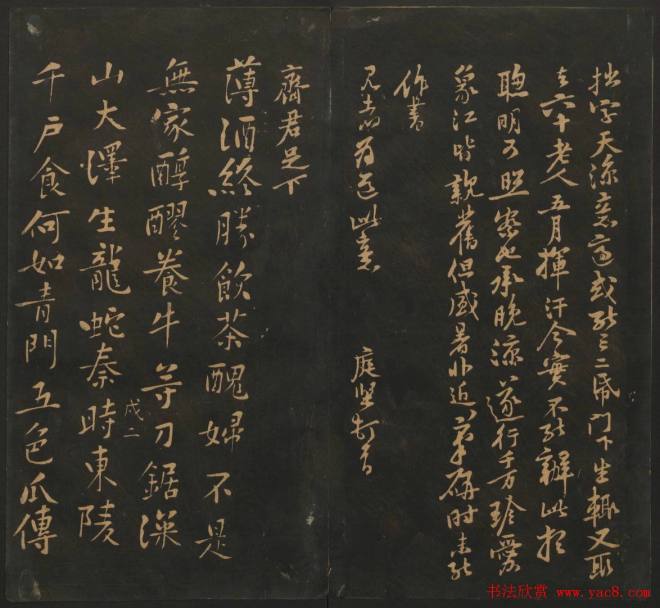 拙字天涼意適或能三二紙門下生輒又取
去六十老人五月揮汗今實不能辦此想
聰明可照察也承晚涼遂行千萬珍愛
象江皆親舊但盛暑非近筆硯時未能
作書
見者為道此意 庭堅頓首
齊君足下
薄酒終勝飲茶醜婦不是
無家醇醪養牛等刀鋸深
山大澤生龍蛇秦時東陵
戍二
千戶食何如青門五色瓜傳
书法欣赏 www.yac8.com